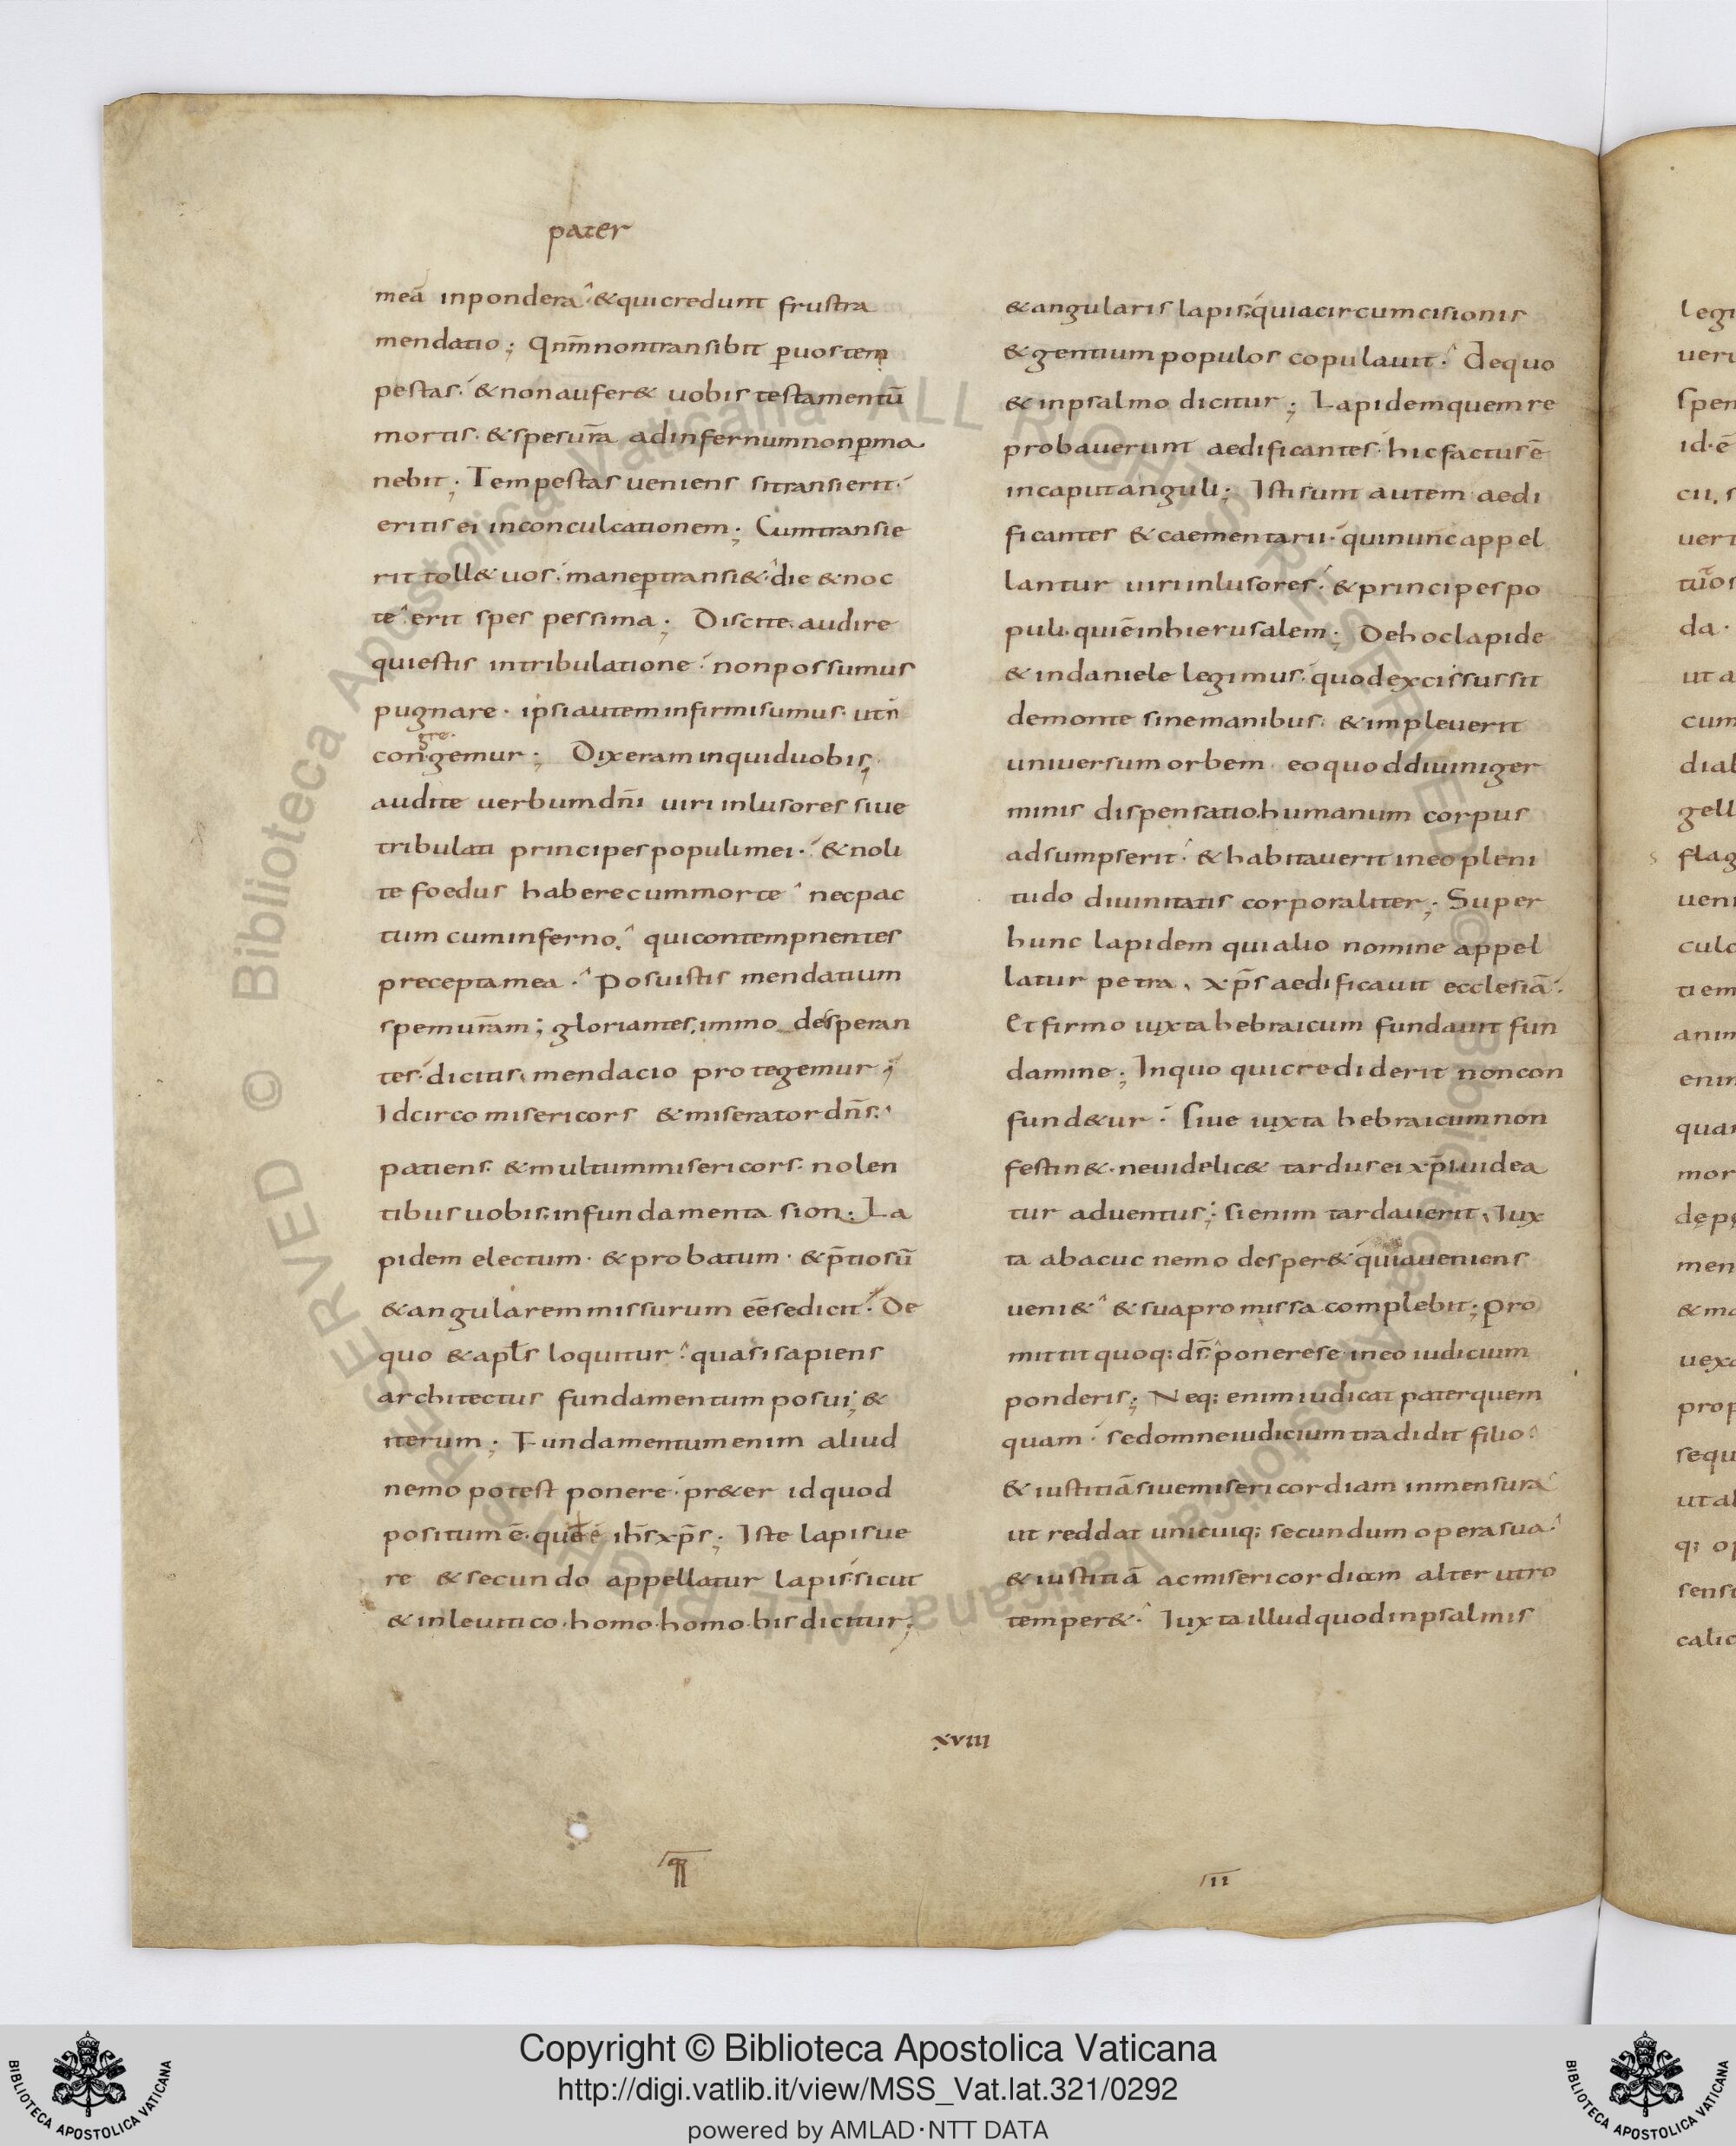 pater
meā inpondera &quicredunt frustra
mendatio; Qnm̄nontransibit ꝑuostem
pestas. &nonaufer& uobis testamentū
mortis. &spesur̄a adinfernumnonꝑma
nebit; Tempestas ueniens sitransierit.
eritis ei inconculcationem; Cumtransie
rit toll& uos. maneꝑtransi&. die &noc
te erit spes pessima; Discite audire
quiestis intribulatione. nonpossumus
pugnare. ipsiauteminfirmisumus. utn̄
gre.
congemur; Dixeram inquiduobis,
audite uerbumdn̄i uiri inlusores siue
tribulati principes populi mei. &noli
te foedus haberecummorte necpac
tum cuminferno. quicontempnentes
precepta mea. Posuistis mendatium
spemur̄am; gloriantes. immo desperan
tes. dicitis. mendacio protegemur;
Idcirco misericors &miserator dn̄s.
patiens. &multummisericors. nolen
tibus uobis. infundamenta sion; La
pidem electum. &probatum. &p̄tiosū
&angularemmissurum eēsedicit. De
quo &apt̄s loquitur. quasisapiens
architectus fundamentum posui; &
iterum; Fundamentumenim aliud
nemo potest ponere. pr&er idquod
positumē. quē ih̄s xp̄s; Iste lapis ue
re &secundo appellatur lapis. sicut
&inleuitico. homo. homo. bis dicitur;
&angularis lapis. quiacircumcisionis
&gentium populos copulauit. Dequo
&inpsalmo dicitur; Lapidemquemre
probauerunt aedificantes. hicfactusē
incaputanguli; Isti sunt autem aedi
ficantes &caementarii. quinuncappel
lantur uiri inlusores. &principespo
puli. quiēinhierusalem; Dehoclapide
&indaniele legimus. quodexcissussit
demonte sinemanibus. &impleuerit
uniuersumorbem eoquoddiuiniger
minis dispensatio. humanum corpus
adsumpserit. &habitauerit ineo pleni
tudo diuinitatis corporaliter; Super
hunc lapidem qui alio nomine appel
latur petra, xp̄s aedificauit ecclesiā.
Et firmo iuxta hebraicum fundauit fun
damine; Inquo quicrediderit noncon
fund&ur. Siue iuxta hebraicumnon
festin&. neuidelic& tardus ei xp̄i uidea
tur aduentus; sienim tardauerit, Iux
ta abacuc nemo desper& quiaueniens
ueni& &suapromissa complebit; pro
mittit quoq; ds̄ ponerese ineo iudicium
ponderis; Neq; enim iudicat paterquem
quam. sedomneiudicium tradidit filio.
&iustitiāsiuemisericordiam inmensura
ut reddat unicuiq; secundum opera sua.
&iustitiā acmisericordiam alterutro
temper&. Iuxta illudquodinpsalmis
xviii
ii
legi
ueri
spen
id. ē
uert
da.
ut a
cum
diab
gell
s flag
ueni
culo
tiem
anim
enim
quar
mor
men
&ma
uexa
prop
sequ
ut al
q; op
sensu
calic
BIBLIOTECA APOSTOLICA VATICANA
Copyright © Biblioteca Apostolica Vaticana
http://digi.vatlib.it/view/MSS_Vat.lat.321/0292
powered by AMLAD·NTT DATA
BIBLIOTECA APOSTOLICA VATICANA
© Biblioteca Apostolica Vaticana ALL RIGHTS RESERVED © Biblioteca Apostolica Vaticana ALL RIGHTS RESERVED